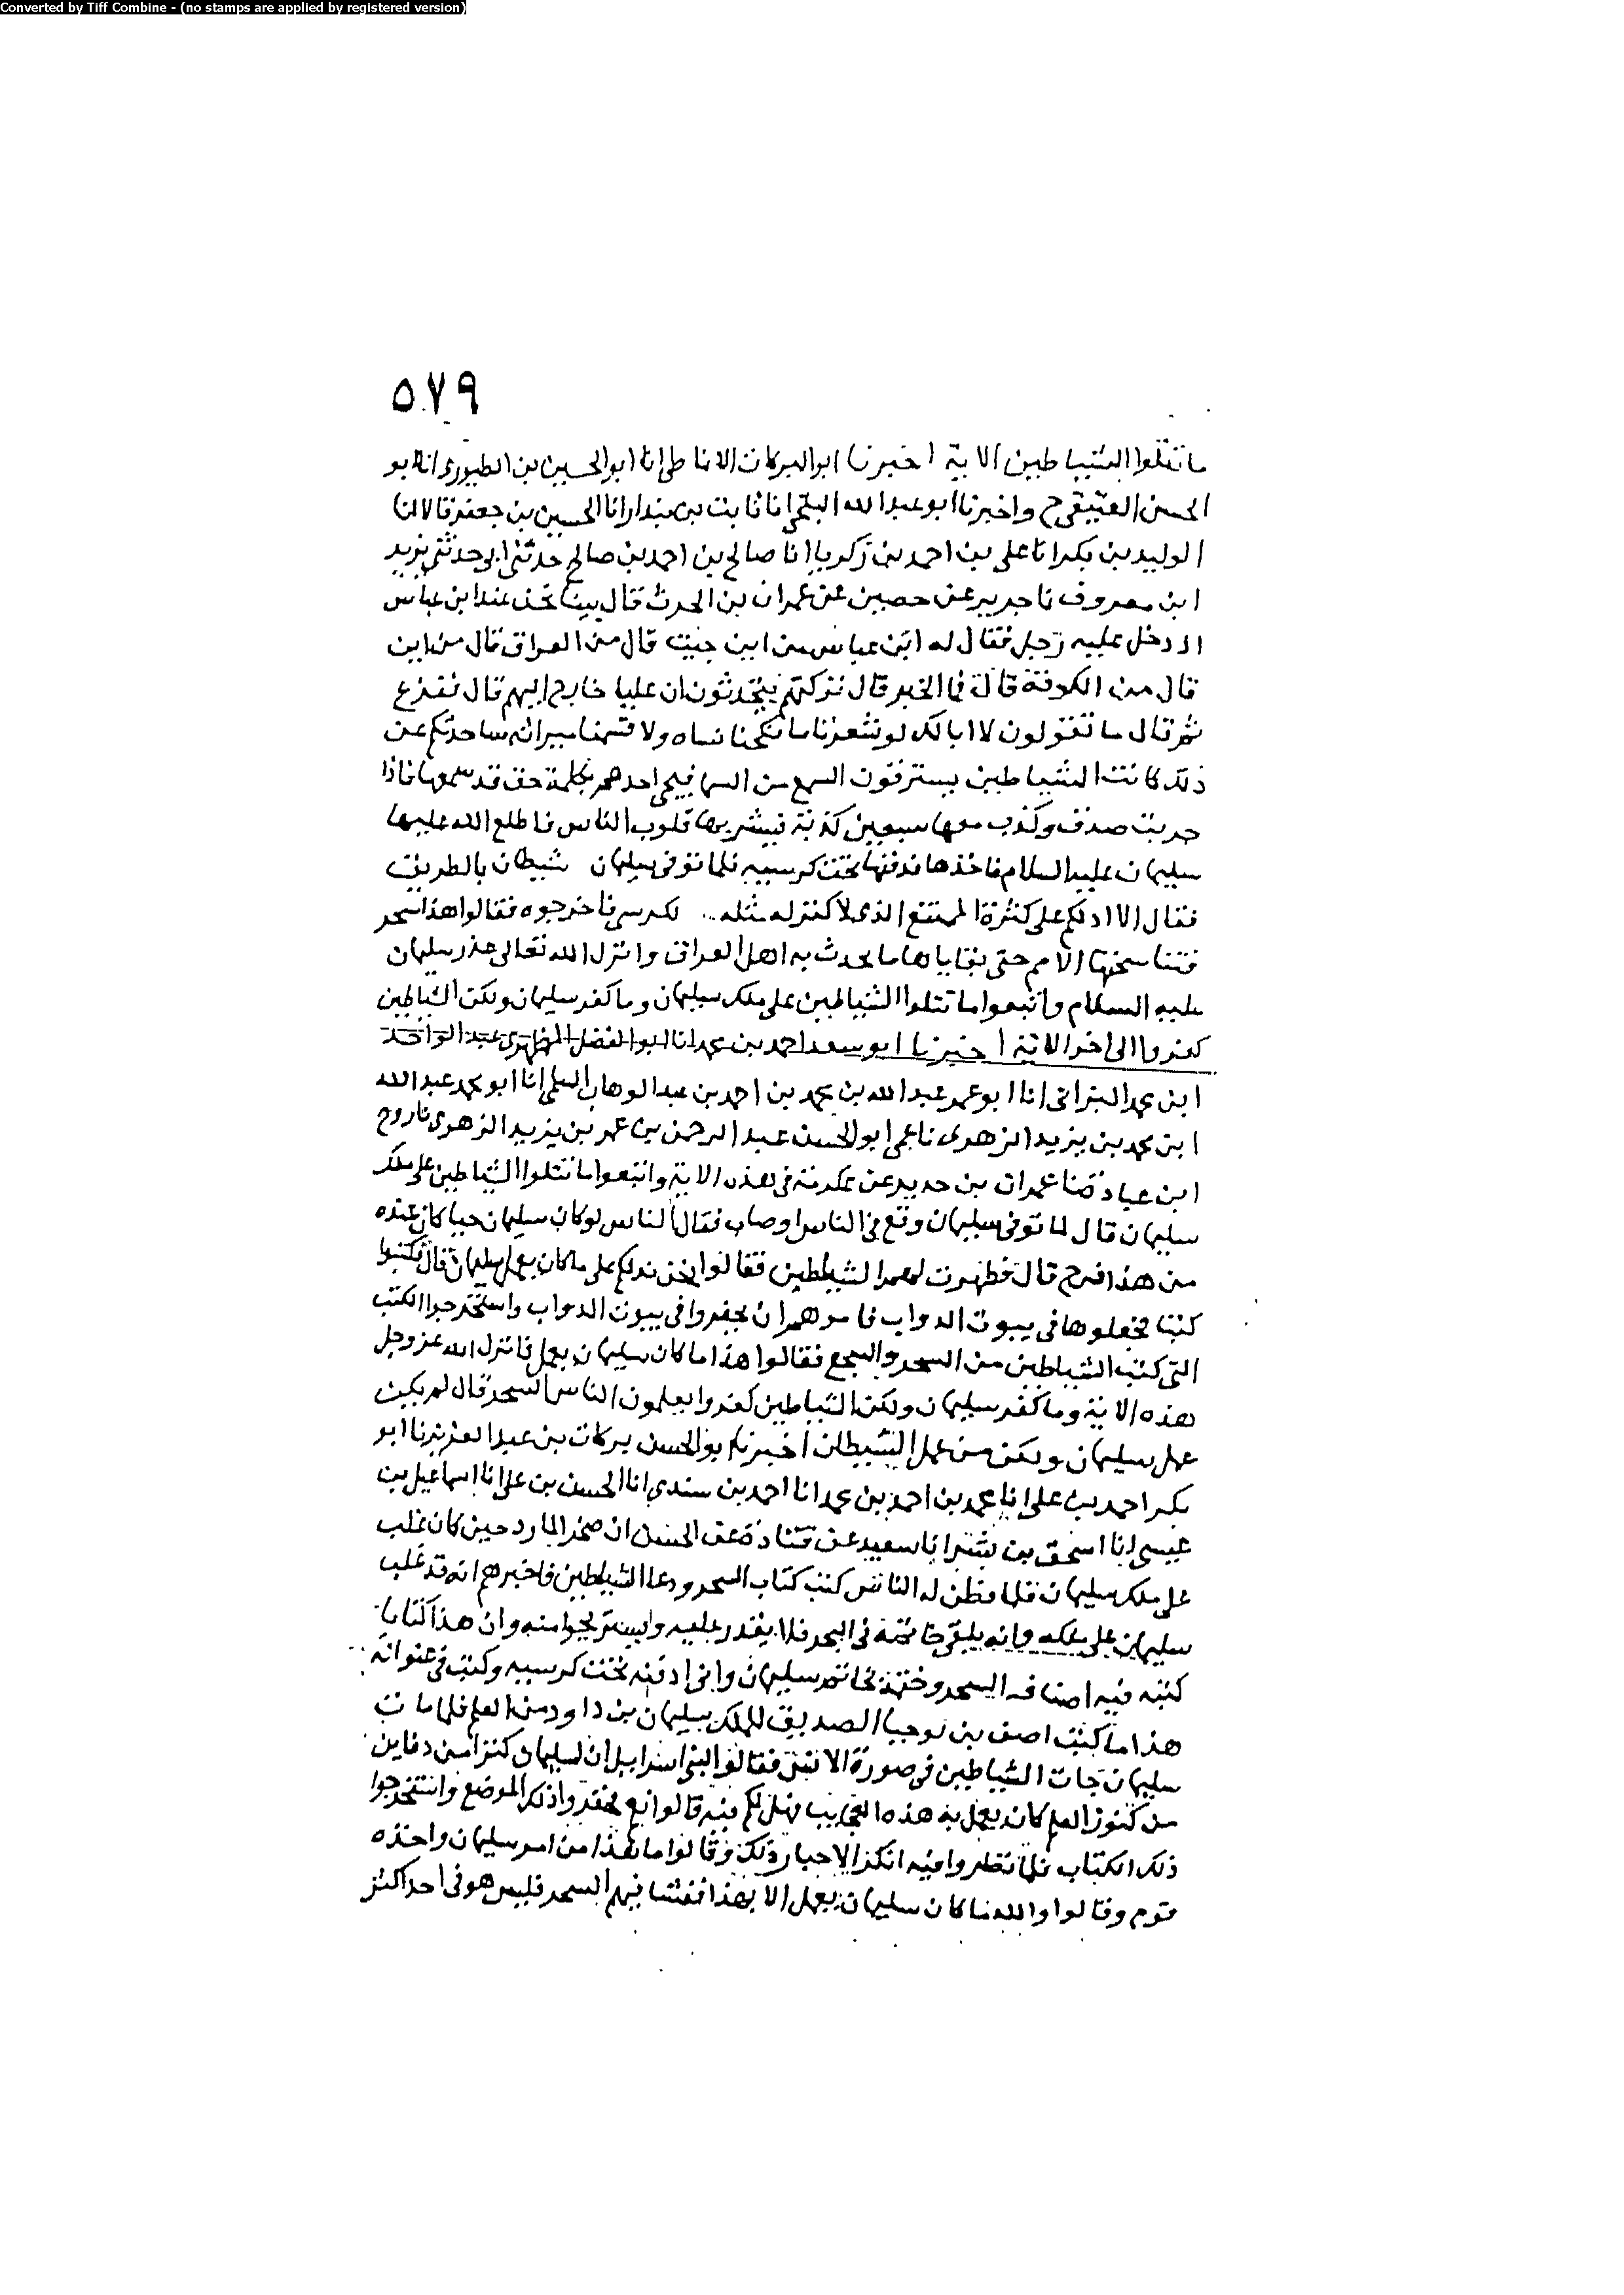 Converted by Tiff Combine - (no stamps are applied by registered version)
٥٧٩
ما تتلوا الشياطين الاية اخبرنا ابو البركات الانماطي انا ابو الحسين بن الطيوري انا ابو
الحسن العتيقي ح واخبرنا ابو عبد الله البلخي انا ثابت بن بندار انا الحسين بن جعفر قالا انا
الوليد بن بكر انا علي بن احمد بن زكريا انا صالح بن احمد بن صالح حدثني ابي حدثني يزيد
ابن معروف نا جرير عن حصين عن عمران بن الحرث قال بينا نحن عند ابن عباس
اذ دخل عليه رجل فقال له ابن عباس من اين جيت قال من العراق قال من اين
قال من الكوفة قال فما الخبر قال تركتهم يتحدثون ان عليا خارج اليهم قال ففزع
ثم قال ما تقولون لا ابا لك لو شعرنا ما نكحنا نساه ولا قسمنا ميراثه ساحدثكم عن
ذلك كانت الشياطين يسترقون السمع من السما فيجي احدهم بكلمة حق قد سمعها فاذا
جربت صدق وكذب معها سبعين كذبة فيشربها قلوب الناس فاطلع الله عليها
سليمان عليه السلام فاخذها فدفنها تحت كرسيه فلما توفي سليمان شيطان بالطريق
فقال الا ادلكم على كنزة الممتنع الذي لا كنز له مثله .. لكرسي فاخرجوه فقالوا هذا سحر
فتناسختها الامم حتى بقاياها ما يحدث به اهل العراق وانزل الله تعالى عذر سليمان
عليه السلام واتبعوا ما تتلوا الشياطين على ملك سليمان وما كفر سليمان ولكن الشياطين
كفروا الى اخر الاية اخبرنا ابو سعد احمد بن محمد انا ابو الفضل المطهر بن عبد الواحد
ابن محمد البزاني انا ابو عمر عبد الله بن محمد بن احمد بن عبد الوهاب السلمي انا ابو محمد عبد الله
ابن محمد بن يزيد الزهري نا عمي ابو الحسن عبد الرحمن بن عمر بن يزيد الزهري نا روح
ابن عبادة نا عمران بن حدير عن عكرمة في هذه الاية واتبعوا ما تتلوا الشياطين على ملك
سليمان قال لما توفي سليمان وقع في الناس اوصاب فقال الناس لو كان سليمان حيا كان عنده
من هذا فرج قال فظهرت لهم الشياطين فقالوا نحن ندلكم على ما كان يعمل سليمان قال فكتبوا
كتبا فجعلوها في بيوت الدواب فامرهم ان يحفروا في بيوت الدواب واستخرجوا الكتب
التي كتب الشياطين من السحر والسجع فقالوا هذا ما كان سليمان يعمل فانزل الله عز وجل
هذه الاية وما كفر سليمان ولكن الشياطين كفروا يعلمون الناس السحر قال لم يكن
عمل سليمان ولكن من عمل الشيطان اخبرنا ابو الحسن بركات بن عبد العزيز نا ابو
بكر احمد بن علي انا محمد بن احمد بن محمد انا احمد بن سندي انا الحسن بن علي انا اسماعيل بن
عيسى انا اسحق بن بشر انا سعيد عن قتادة عن الحسن ان صخر المارد حين كان غلب
على ملك سليمان فلما فطن له الناس كتب كتاب السحر ودعا الشياطين فاخبرهم انه قد غلب
سليمان على ملكه وانه يلقي خاتمه في البحر فلا يقدر عليه ويستريحوا منه وان هذا كتابا
كتبه فيه اصناف السحر وختمه بخاتم سليمان واني ادفنه تحت كرسيه وكتب في عنوانه
هذا ما كتب اصف بن توحيا الصديق للملك سليمان بن داود من العلم فلما مات
سليمان جات الشياطين في صورة الانس فقالوا لبني اسرايل ان لسليمان كنزا من دفاين
من كنوز العلم كان يعمل به هذه العجايب فهل لكم فيه قالوا نعم فحفروا ذلك الموضع واستخرجوا
ذلك الكتاب فلما نظروا فيه انكر الاحبار ذلك وقالوا ما هذا من امر سليمان واخذه
قوم وقالوا والله ما كان سليمان يعمل الا بهذا ففشا فيهم السحر فليس هو في احد اكثر